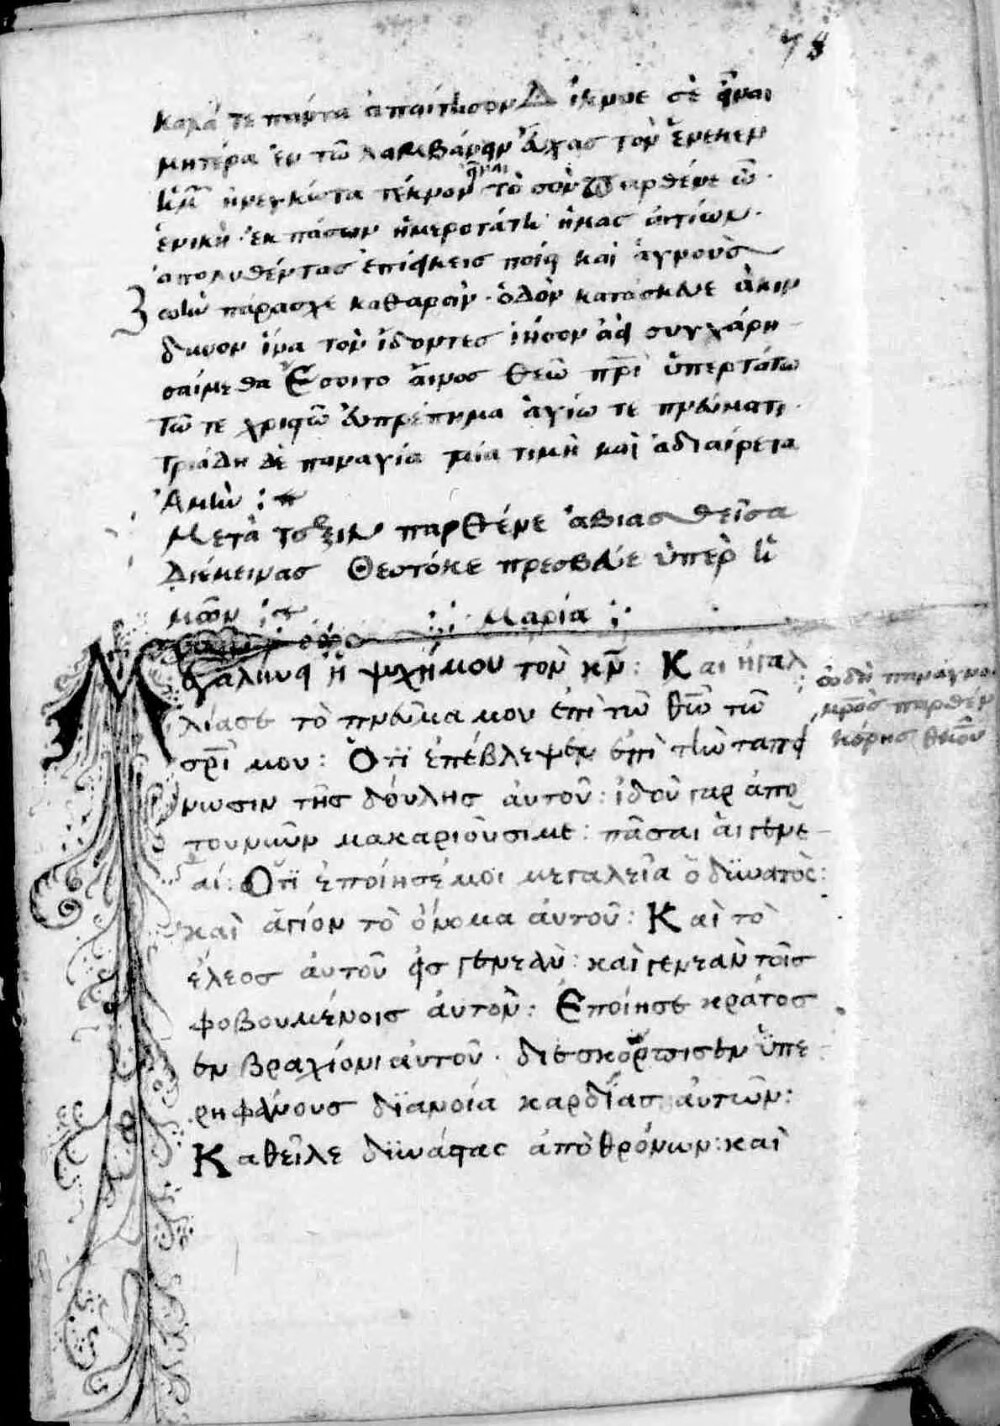 78
καλά τε πάντα ἀπαίτησον Δίκνυε σὲ εἶναι
μητέρα ἐν τῶ λαμβάνειν εὐχας τὸν ἕνεκεν
ἡμῶν ἠνεγκώτα τέκνον εἶναι τὸ σὸν Παρθένε ὦ
ἑνικὴ ἐκ πάσων ἡμεροτάτη ἡμας αἰτίων
ἀπολυθέντας ἐπιεικεις ποίει καὶ ἁγνοὺς
Ζωὴν πάρασχε καθαρὰν ὁδὸν κατασκευε ἀκιν
δυνον ἱνα τὸν ἰδοντες ἰησον ἀεὶ συγχάρη
σαίμεθα Εσοιτο αἶνος θεῶ πρὶ ὑπερτάτω
τῶ τε χριστῶ εὐπρέπημα ἁγίω τε πνεύματι
Τριάδη δὲ παναγία μία τιμὴ καὶ ἀδιαίρετα
Ἀμὴν
Μετὰ τόξιν παρθένε ἀβιασθεῖσα
Διέμεινας Θεοτόκε πρεσβευε ὑπὲρ ἡ
μῶν
Μαρία
Μεγαλύνει ἡ ψχή μου τὸν κν: Και ἠγαλ
λίασε τὸ πνεῦμα μου ἐπὶ τῶ θῶ τῶ
σρί μου: Ὅτϊ ἐπέβλεψεν ἐπὶ τὴν ταπεί
νωσιν τῆς δούλης αὐτοῦ: ἰδοῦ γαρ ἀπο
τουνῦν μακαριοῦσιμε: πᾶσαι ἁι γενε
αί: Ὅτϊ ἐποίησέ μοι μεγαλεῖα ὁ δϋνατὸς:
και ἅγιον τὸ ὄνομα αὐτοῦ: Καὶ τὸ
ἔλεος αὐτοῦ εἰς γενεὰν: καὶ γενεὰν τοῖς
φοβουμένοις αὐτὸν: Ἐποίησε κράτος
εν βραχίονι αὐτοῦ· διεσκόρπισεν ὑπε
ρηφάνους διανοία καρδίας αὐτῶν:
Καθεῖλε δϋνάστας ἀπὸ θρόνων: καὶ
ὠδὴ παναγνου
μρὸς παρθέν
κόρης θεοῦ